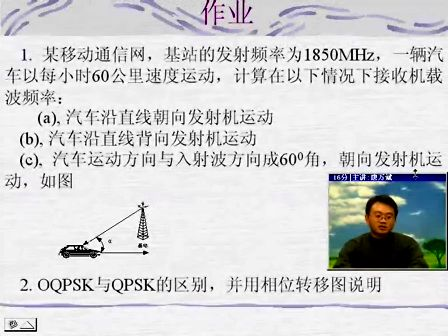 作业
1. 某移动通信网，基站的发射频率为1850MHz，一辆汽
车以每小时60公里速度运动，计算在以下情况下接收机载
波频率：
(a), 汽车沿直线朝向发射机运动
(b), 汽车沿直线背向发射机运动
(c), 汽车运动方向与入射波方向成60⁰角，朝向发射机运
动，如图
α
基站
2. OQPSK与QPSK的区别，并用相位转移图说明